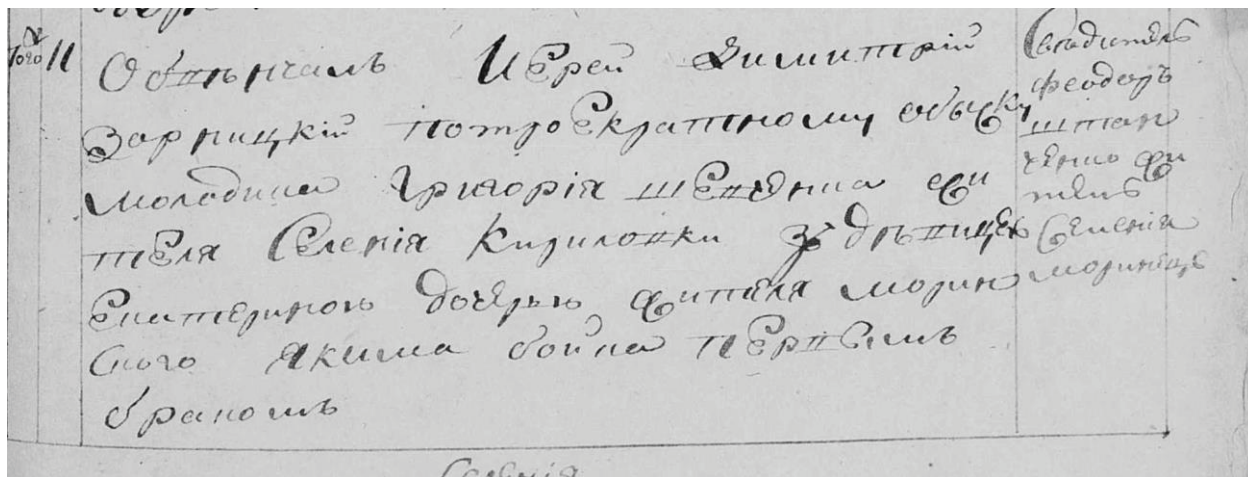 11
Обвѣнчалъ Иерей Димитрій
Зарницкій потроекратному обыску
молодика Григорія Шевченка жи
теля Селенія Кириловки зъ дѣвицею
Екатериною дочерью жителя морин
ского Якима бойка первымъ
бракомъ
Свидитель
Феодоръ
житель
Селенія
моринецъ
Селенія